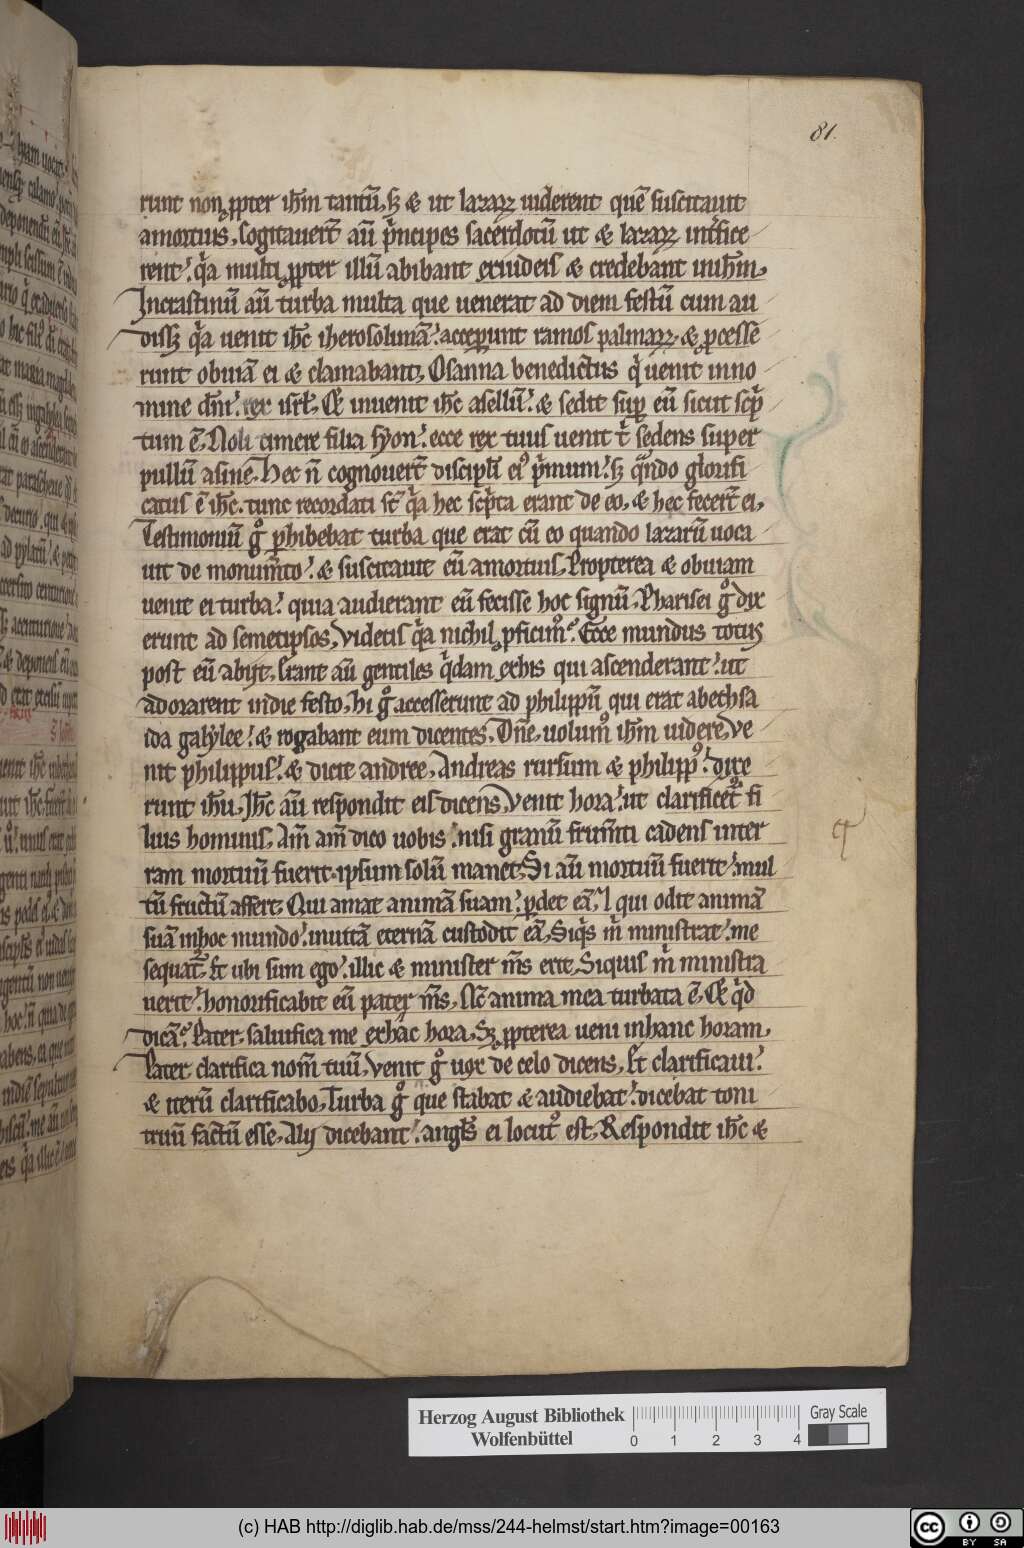 81.
runt non ꝓpter ih̄m tantū, sȝ & ut lazaꝝ uiderent quē suscitauit
amortuis, Cogitauer̄t aū pͥncipes sacerdotū ut & lazaꝝ int̄fice
rent. qͥa multi ꝓpter illū abibant exiudeis & credebant inih̄m,
Incrastinū aū turba multa que uenerat ad diem festū cum au
dissȝ qͥa uenit ih̄c iherosolimā. acceꝑunt ramos palmaꝝ. & ꝓcesse
runt obuiā ei & clamabant, Osanna benedictus qͥ uenit inno
mine dn̄i. rex isrł, Et inuenit ih̄c asellū. & sedit suꝑ eū sicut scͥp
tum ē, Noli timere filia syon. ecce rex tuus uenit t̄ sedens super
pullū asine, Hec n̄ cognouer̄t discipłi eiꝰ pͥmum. sȝ qͣndo glorifi
catus ē ih̄c. tunc recordati st̄ qͥa hec scͥpta erant de eo, & hec fecer̄t ei,
Testimoniū gͦ ꝑhibebat turba que erat cū eo quando lazarū uoca
uit de monum̄to. & suscitauit eū amortuis, Propterea & obuiam
uenit ei turba. quia audierant eū fecisse hoc signū, Pharisei gͦ dix
erunt ad semetipsos, Videtis qͥa nichil ꝓficimꝰ. Ecce mundus totus
post eū abijt, Erant aū gentiles qͥdam exhis qui ascenderant. ut
adorarent indie festo, hi gͦ accesserunt ad philippū qui erat abethsa
ida galylee. & rogabant eum dicentes, Dn̄e, uolumꝰ ih̄m uidere, Ve
nit philippus. & dicit andree, Andreas rursum & philippꝰ. dixe
runt ih̄u, Ih̄c aū respondit eis dicens, Venit hora. ut clarificet̄ fi
lius hominis, Am̄ am̄ dico uobis. nisi granū frum̄ti cadens inter
ram mortuū fuerit. ipsum solū manet, Si aū mortuū fuerit. mul
tū fructū affert, Qui amat animā suam. ꝑdet eā, & qui odit animā
suā inhoc mundo. inuitā eternā custodit eā, Siqͥs m̄ ministrat. me
sequat̄, & ubi sum ego. illic & minister m̄s erit, Siquis m̄ ministra
uerit. honorificabit eū pater m̄s, Nc̄ anima mea turbata ē, Et qͥd
dicā. Pater, saluifica me exhac hora, Sȝ ꝓpterea ueni inhanc horam,
Pater clarifica nom̄ tuū, Venit gͦ uox de celo dicens, Et clarificaui.
& iterū clarificabo, Turba gͦ que stabat & audiebat. dicebat toni
truū factū esse, Alij dicebant. angłs ei locutꝰ est, Respondit ih̄c &
Herzog August Bibliothek
Wolfenbüttel
0 1 2 3 4
Gray Scale
(c) HAB http://diglib.hab.de/mss/244-helmst/start.htm?image=00163
cc BY SA